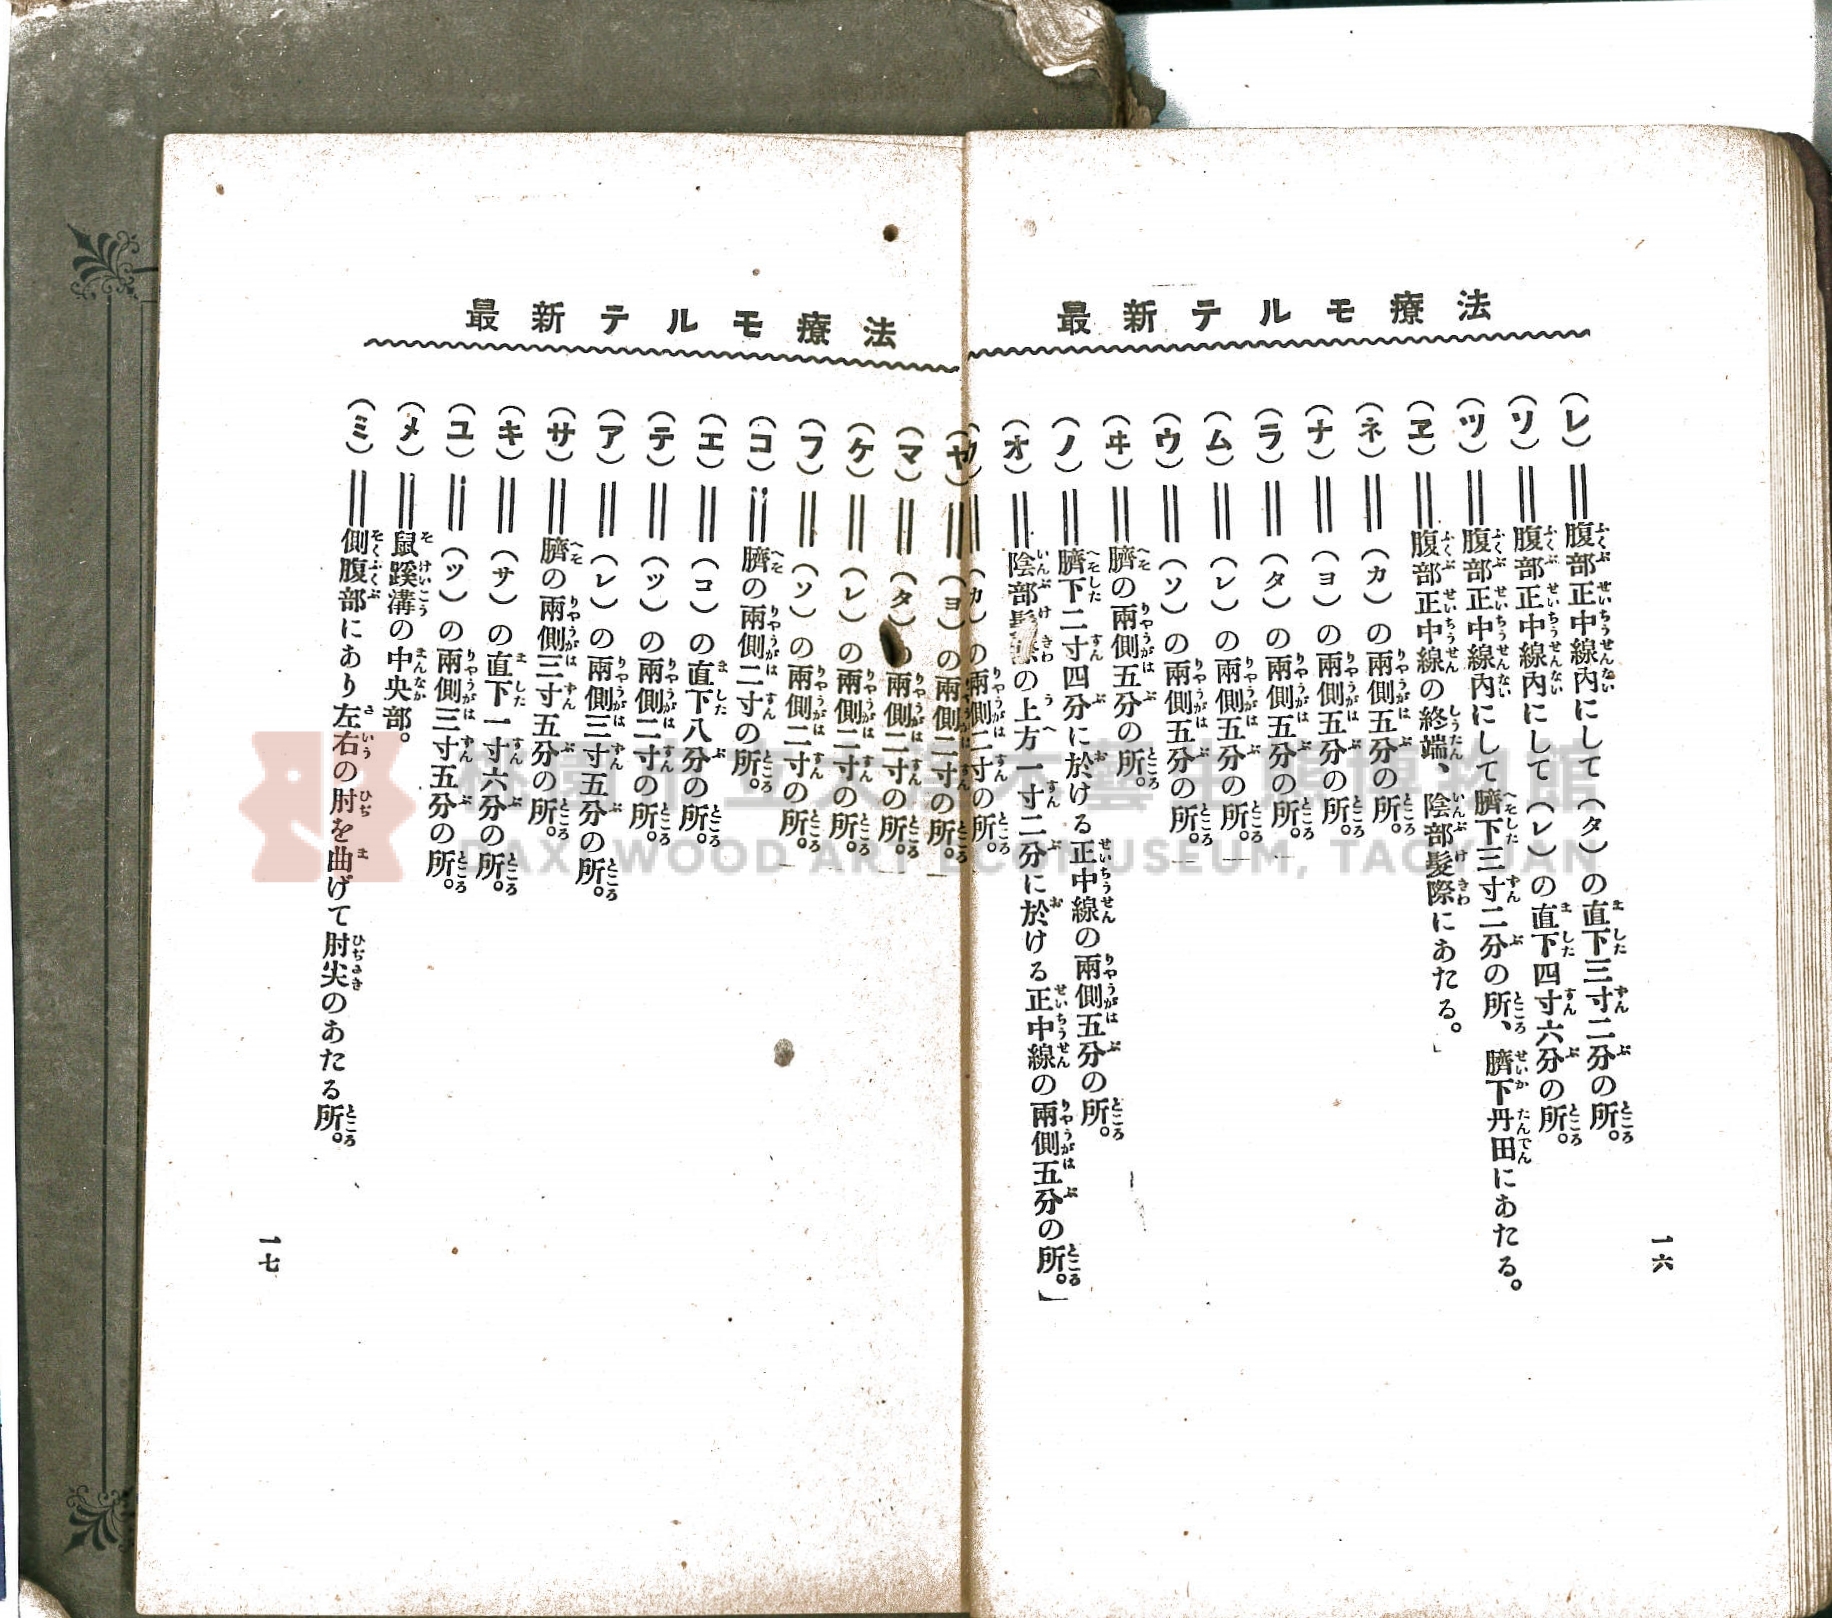 最新テルモ療法
（レ）＝腹部正中線內にして（タ）の直下三寸二分の所。
（ソ）＝腹部正中線內にして（レ）の直下四寸六分の所。
（ツ）＝腹部正中線內にして臍下三寸二分の所、臍下丹田にあたる。
（ヱ）＝腹部正中線の終端、陰部髮際にあたる。」
（ネ）＝（カ）の兩側五分の所。
（ナ）＝（ヨ）の兩側五分の所。
（ラ）＝（タ）の兩側五分の所。
（ム）＝（レ）の兩側五分の所。
（ウ）＝（ソ）の兩側五分の所。
（ヰ）＝臍の兩側五分の所。
（ノ）＝臍下二寸四分に於ける正中線の兩側五分の所。
（オ）＝陰部の上方一寸二分に於ける正中線の兩側五分の所。」
＝（カ）の兩側二寸の所。
一六
最新テルモ療法
（ヤ）＝（ヨ）の兩側二寸の所。
（マ）＝（タ）の兩側二寸の所。
（ケ）＝（レ）の兩側二寸の所。
（フ）＝（ソ）の兩側二寸の所。
（コ）＝臍の兩側二寸の所。
（エ）＝（コ）の直下八分の所。
（テ）＝（ツ）の兩側二寸の所。
（ア）＝（レ）の兩側三寸五分の所。
（サ）＝臍の兩側三寸五分の所。
（キ）＝（サ）の直下一寸六分の所。
（ユ）＝（ツ）の兩側三寸五分の所。
（メ）＝鼠蹊溝の中央部。
（ミ）＝側腹部にあり左右の肘を曲げて肘尖のあたる所。
一七
桃園市立大溪木藝生態博物館
DAXI WOOD ART ECOMUSEUM, TAOYUAN